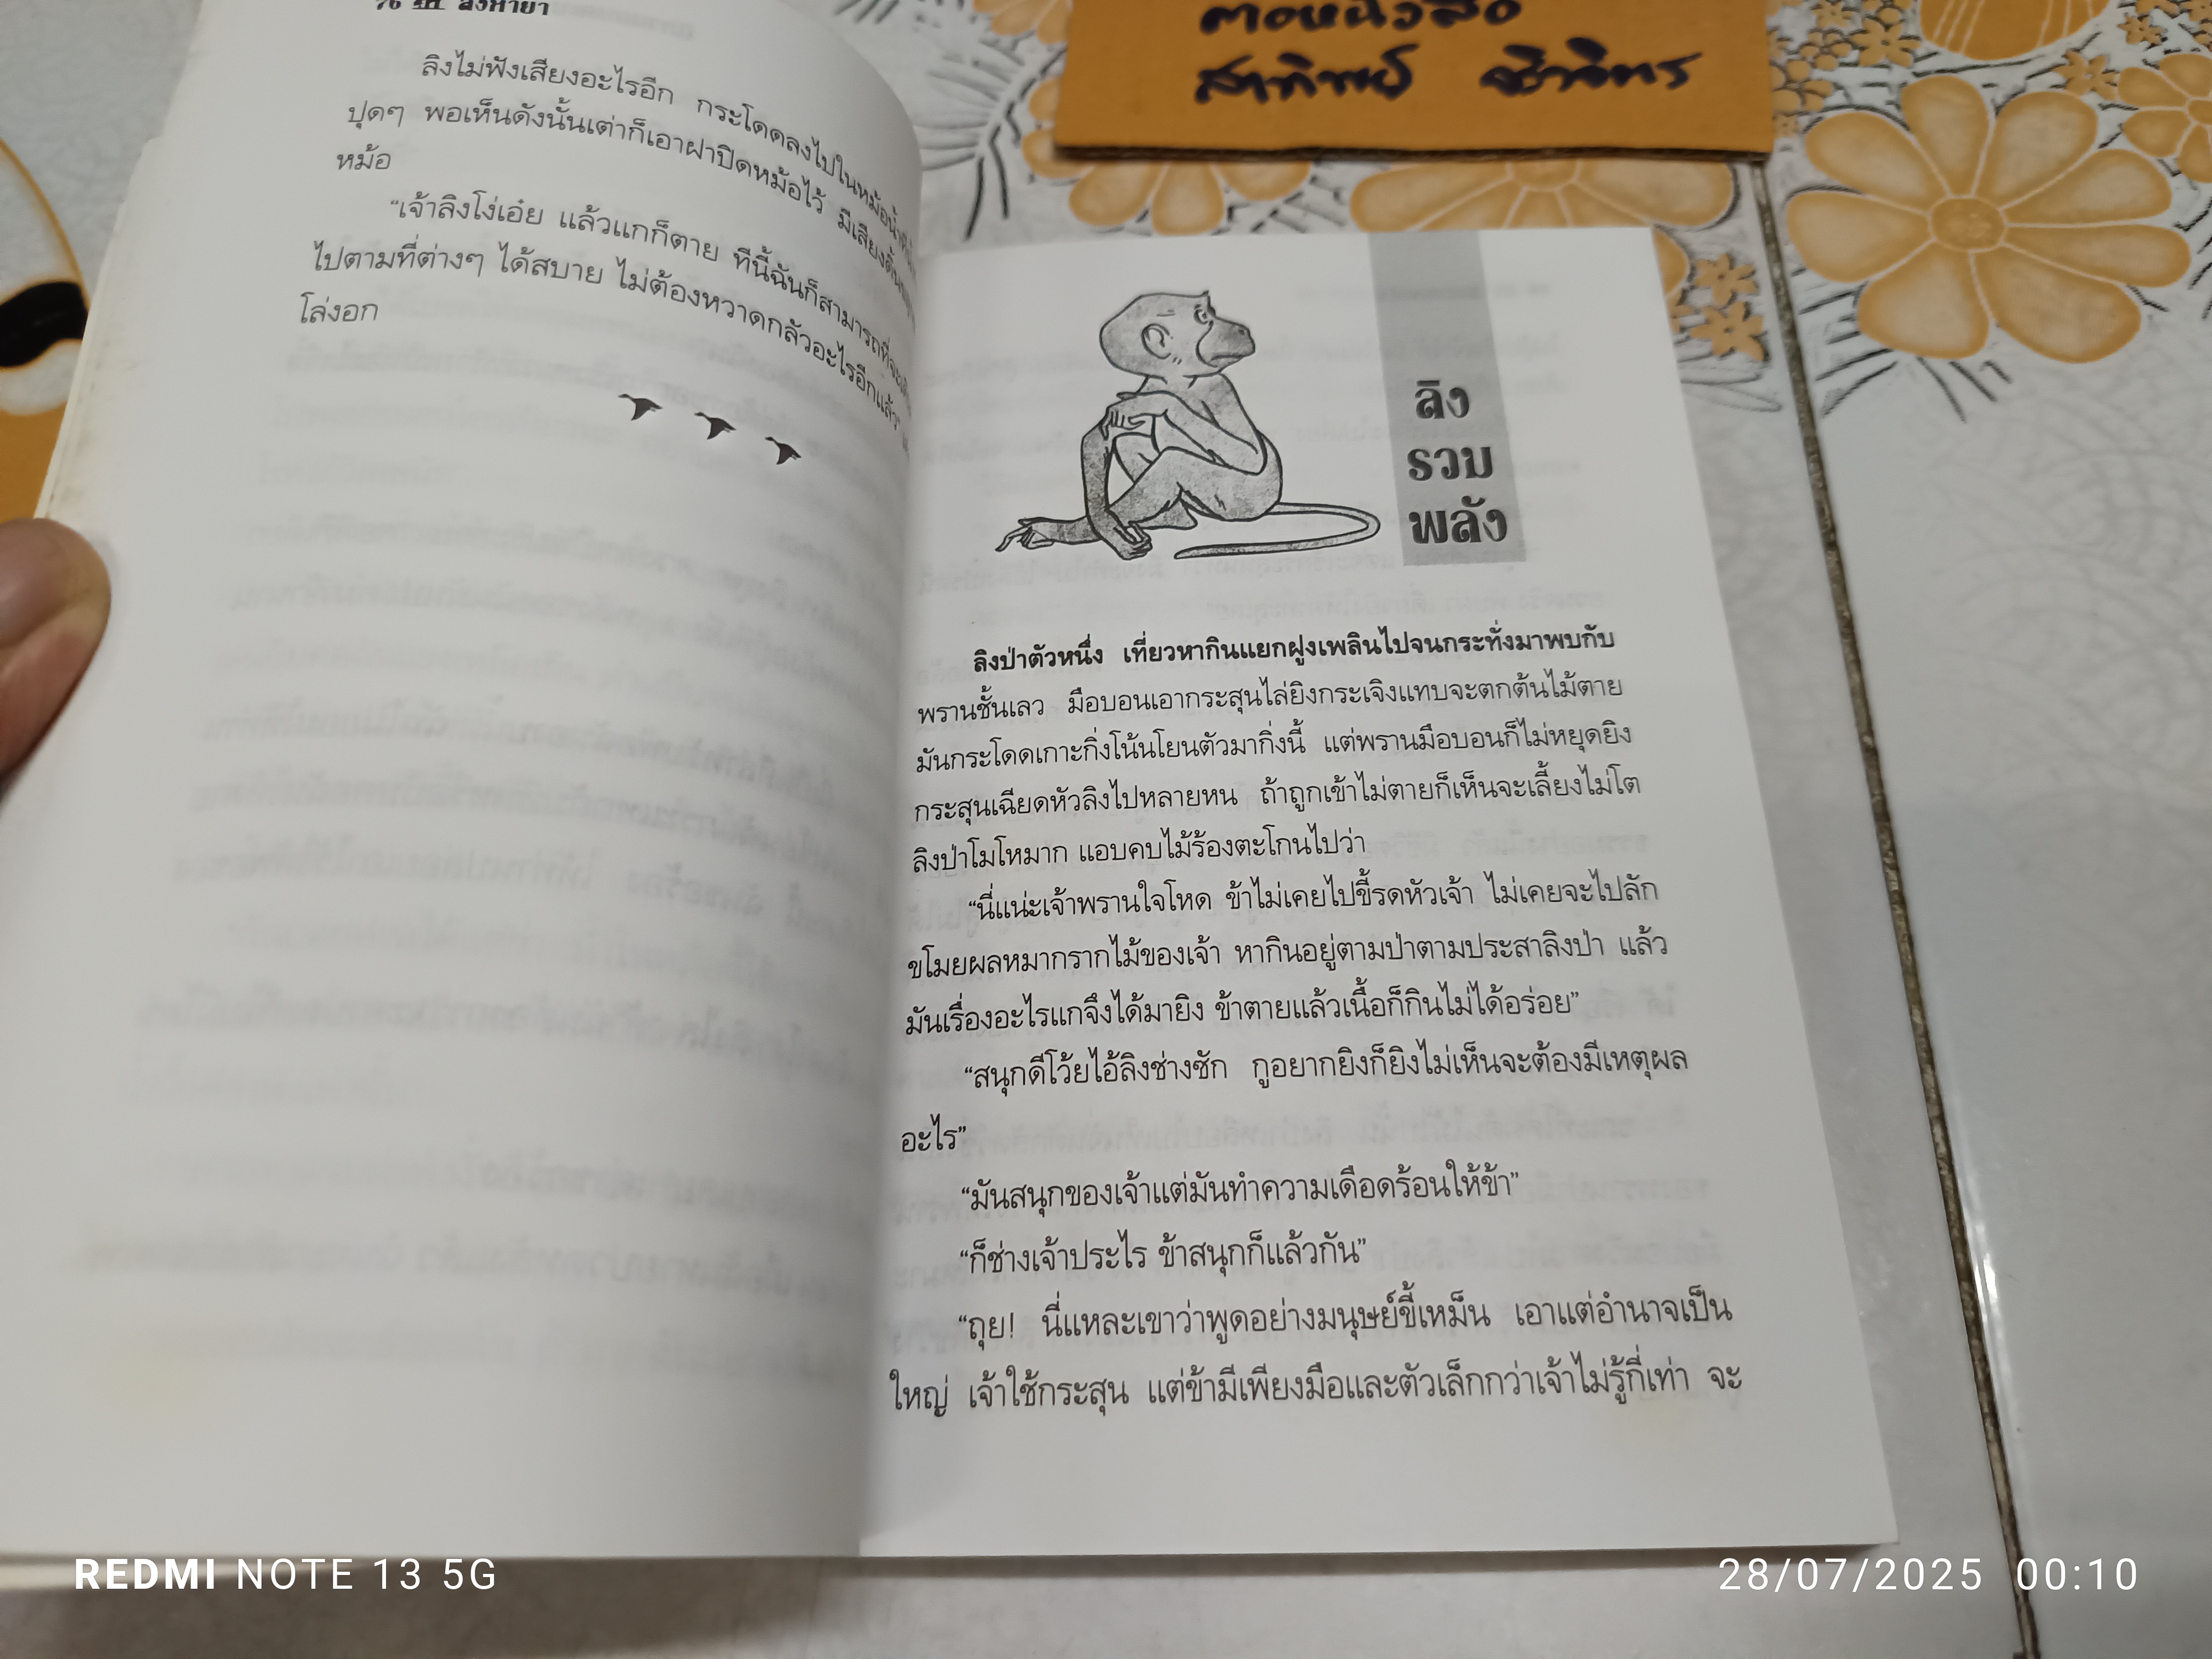 ลิงไม่ฟังเสียงอะไรอีก กระโดดลงไปในหม้อน้ำ
ปุดๆ พอเห็นดังนั้นเต่าก็เอาฝาปิดหม้อไว้ มีเสียงดิ้น
หม้อ
“เจ้าลิงโง่เอ๋ย แล้วแกก็ตาย ทีนี้ฉันก็สามารถที่จะ
ไปตามที่ต่างๆ ได้สบาย ไม่ต้องหวาดกลัวอะไรอีกแล้ว”
โล่งอก
ลิง
รวม
พลัง
ลิงป่าตัวหนึ่ง เที่ยวหากินแยกฝูงเพลินไปจนกระทั่งมาพบกับ
พรานชั้นเลว มือบอนเอากระสุนไล่ยิงกระเจิงแทบจะตกต้นไม้ตาย
มันกระโดดเกาะกิ่งโน้นโยนตัวมากิ่งนี้ แต่พรานมือบอนก็ไม่หยุดยิง
กระสุนเฉียดหัวลิงไปหลายหน ถ้าถูกเข้าไม่ตายก็เห็นจะเลี้ยงไม่โต
ลิงป่าโมโหมาก แอบคบไม้ร้องตะโกนไปว่า
“นี่แน่ะเจ้าพรานใจโหด ข้าไม่เคยไปขี้รดหัวเจ้า ไม่เคยจะไปลัก
ขโมยผลหมากรากไม้ของเจ้า หากินอยู่ตามป่าตามประสาลิงป่า แล้ว
มันเรื่องอะไรแกจึงได้มายิง ข้าตายแล้วเนื้อก็กินไม่ได้อร่อย”
“สนุกดีโว้ยไอ้ลิงช่างซัก กูอยากยิงก็ยิงไม่เห็นจะต้องมีเหตุผล
อะไร”
“มันสนุกของเจ้าแต่มันทำความเดือดร้อนให้ข้า”
“ก็ช่างเจ้าประไร ข้าสนุกก็แล้วกัน”
“ถุย! นี่แหละเขาว่าพูดอย่างมนุษย์ขี้เหม็น เอาแต่อำนาจเป็น
ใหญ่ เจ้าใช้กระสุน แต่ข้ามีเพียงมือและตัวเล็กกว่าเจ้าไม่รู้กี่เท่า จะ
REDMI NOTE 13 5G
28/07/2025 00:10